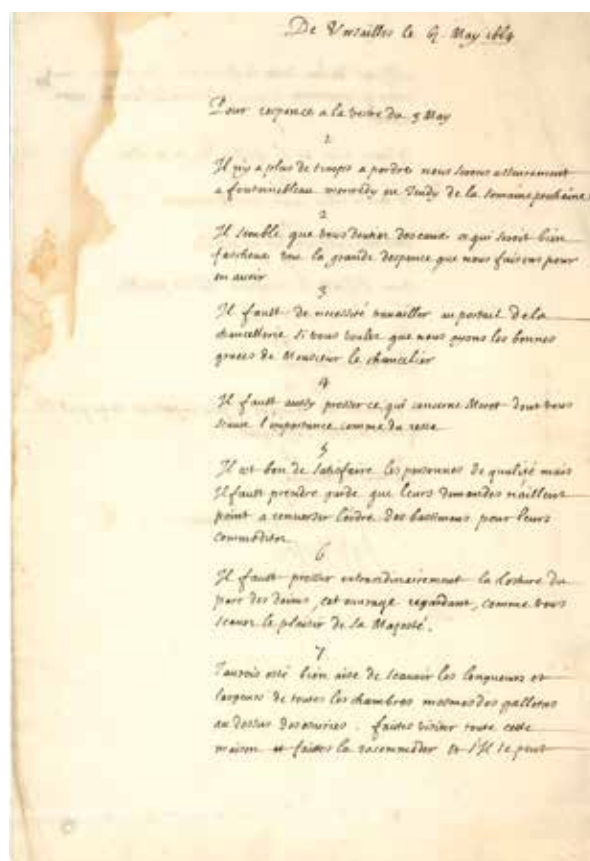 De Versailles le 9 May 1664
Pour responce a la vostre du 5 May
1
Il n'y a plus de temps a perdre nous serons asseurement
a fontainebleau mercredy ou Jeudy de la semaine prochaine
2
Il semble que vous doutiez des eaux ce qui seroit bien
fascheux veu la grande despence que nous faisons pour
en avoir
3
Il fault de necessité travailler au portail de la
chancellerie si vous voulez que nous ayons les bonnes
graces de Monsieur le chancelier
4
Il fault aussy presser ce qui concerne Moret dont vous
scavez l'importance comme du reste
5
Il est bon de satisfaire les personnes de qualité mais
Il fault prendre garde que leurs demandes n'aillent
point a renverser l'ordre des bastimens pour leurs
commoditez
6
Il fault presser extraordinairement la closture du
parc des daims, cet ouvrage regardant, comme vous
scavez le plaisir de sa Majesté.
7
J'aurois esté bien aise de scavoir les longueurs et
largeurs de toutes les chambres mesmes des galletas
au dessus des escuries. faites visiter toute cette
maison et faites la racommoder et s'Il se peut